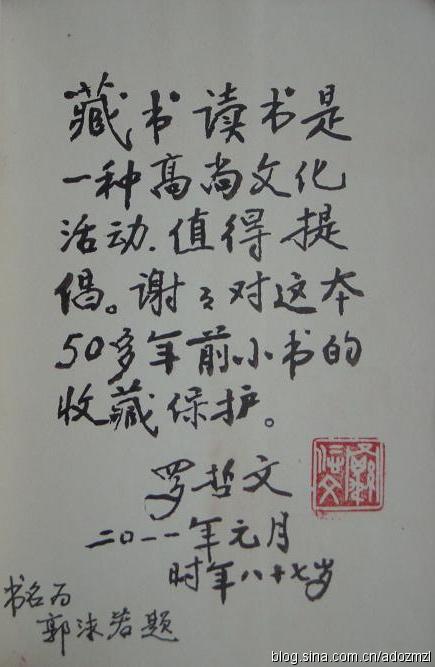 藏书读书是
一种高尚文化
活动.值得提
倡。谢々对这本
50多年前小书的
收藏保护。
罗哲文
二〇一一年元月
时年八十七岁
书名为
郭沫若题
blog.sina.com.cn/adozmzl